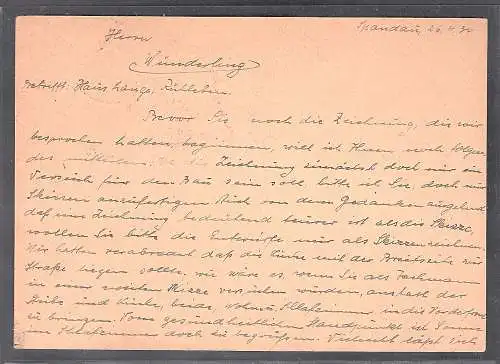 Spandau, 20.4.30
Herrn
Wünderling
Betrifft: Haus Lange, Ruhleben.
Bevor Sie noch die Zeichnung, die wir
besprochen hatten, beginnen, will ich Ihnen noch folgen-
des mitteilen. Da die Zeichnung zunächst doch nur ein
Versuch für den Bau sein soll bitte ich Sie, doch nur
Skizzen anzufertigen. Auch von dem Gedanken ausgehend
daß eine Zeichnung bedeutend teurer ist als die Skizze,
wollen Sie bitte die Entwürfe nur als Skizzen zeichnen.
Wir hatten verabredet daß die Küche mit der Breitseite zur
Straße liegen sollte. wie wäre es, wenn Sie als Fachmann
in einer zweiten Skizze versuchen würden, anstatt der
Diele und Küche, beide, Wohn u. Schlafzimmer, in die Vorderfront
zu bringen. Vom gesundheitlichen Standpunkt ist Sonne
im Schlafzimmer doch zu begrüßen. Vielleicht läßt sich